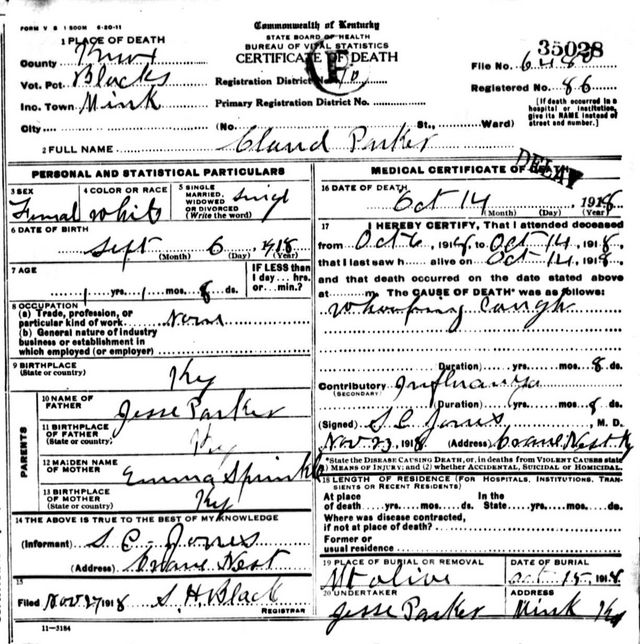 FORM V S 1 500M 6-20-11
Commonwealth of Kentucky
STATE BOARD OF HEALTH
BUREAU OF VITAL STATISTICS
CERTIFICATE OF DEATH
1 PLACE OF DEATH
County Knox
Vot. Pct. Blacks
Inc. Town Mink
City
Registration District No.
Primary Registration District No.
(No. St., Ward)
35028
File No.
Registered No. 86
[If death occurred in a
hospital or institution,
give its NAME instead of
street and number.]
F
2 FULL NAME Claud Parker
PERSONAL AND STATISTICAL PARTICULARS
3 SEX Femal
4 COLOR OR RACE White
5 SINGLE
MARRIED,
WIDOWED
OR DIVORCED
(Write the word) singl
6 DATE OF BIRTH
Sept 6, 1918
(Month) (Day) (Year)
7 AGE
yrs. 1 mos. 8 ds.
IF LESS than
1 day... hrs.
or... min.?
8 OCCUPATION
(a) Trade, profession, or
particular kind of work None
(b) General nature of industry
business or establishment in
which employed (or employer)
9 BIRTHPLACE
(State or country) Ky
PARENTS
10 NAME OF
FATHER Jesse Parker
11 BIRTHPLACE
OF FATHER
(State or country) Ky
12 MAIDEN NAME
OF MOTHER Emma Sprinkle
13 BIRTHPLACE
OF MOTHER
(State or country) Ky
14 THE ABOVE IS TRUE TO THE BEST OF MY KNOWLEDGE
(Informant) S. C. Jones
(Address) Crane Nest
15
Filed Nov 27 1918 S. H. Black
REGISTRAR
11-3184
MEDICAL CERTIFICATE OF
DELAY
16 DATE OF DEATH
Oct 14 1918
(Month) (Day) (Year)
17 I HEREBY CERTIFY, That I attended deceased
from Oct 6, 1918, to Oct 14, 1918,
that I last saw h alive on Oct 14, 1918,
and that death occurred on the date stated above
at m. The CAUSE OF DEATH* was as follows:
Whoofing Caugh
(Duration) yrs. mos. 8 ds.
Contributory Influanza
(SECONDARY)
(Duration) yrs. mos. 8 ds.
(Signed) S. C. Jones M. D.
Nov 23, 1918 (Address) Crane Nest Ky
*State the DISEASE CAUSING DEATH, or, in deaths from VIOLENT CAUSES state
(1) MEANS OF INJURY; and (2) whether ACCIDENTAL, SUICIDAL or HOMICIDAL.
18 LENGTH OF RESIDENCE (FOR HOSPITALS, INSTITUTIONS, TRANSIENTS OR RECENT RESIDENTS)
At place In the
of death yrs. mos. ds. State yrs. mos. ds.
Where was disease contracted,
if not at place of death?
Former or
usual residence
19 PLACE OF BURIAL OR REMOVAL
Mt olive
DATE OF BURIAL
Oct 15, 1918
20 UNDERTAKER
Jesse Parker
ADDRESS
Mink Ky